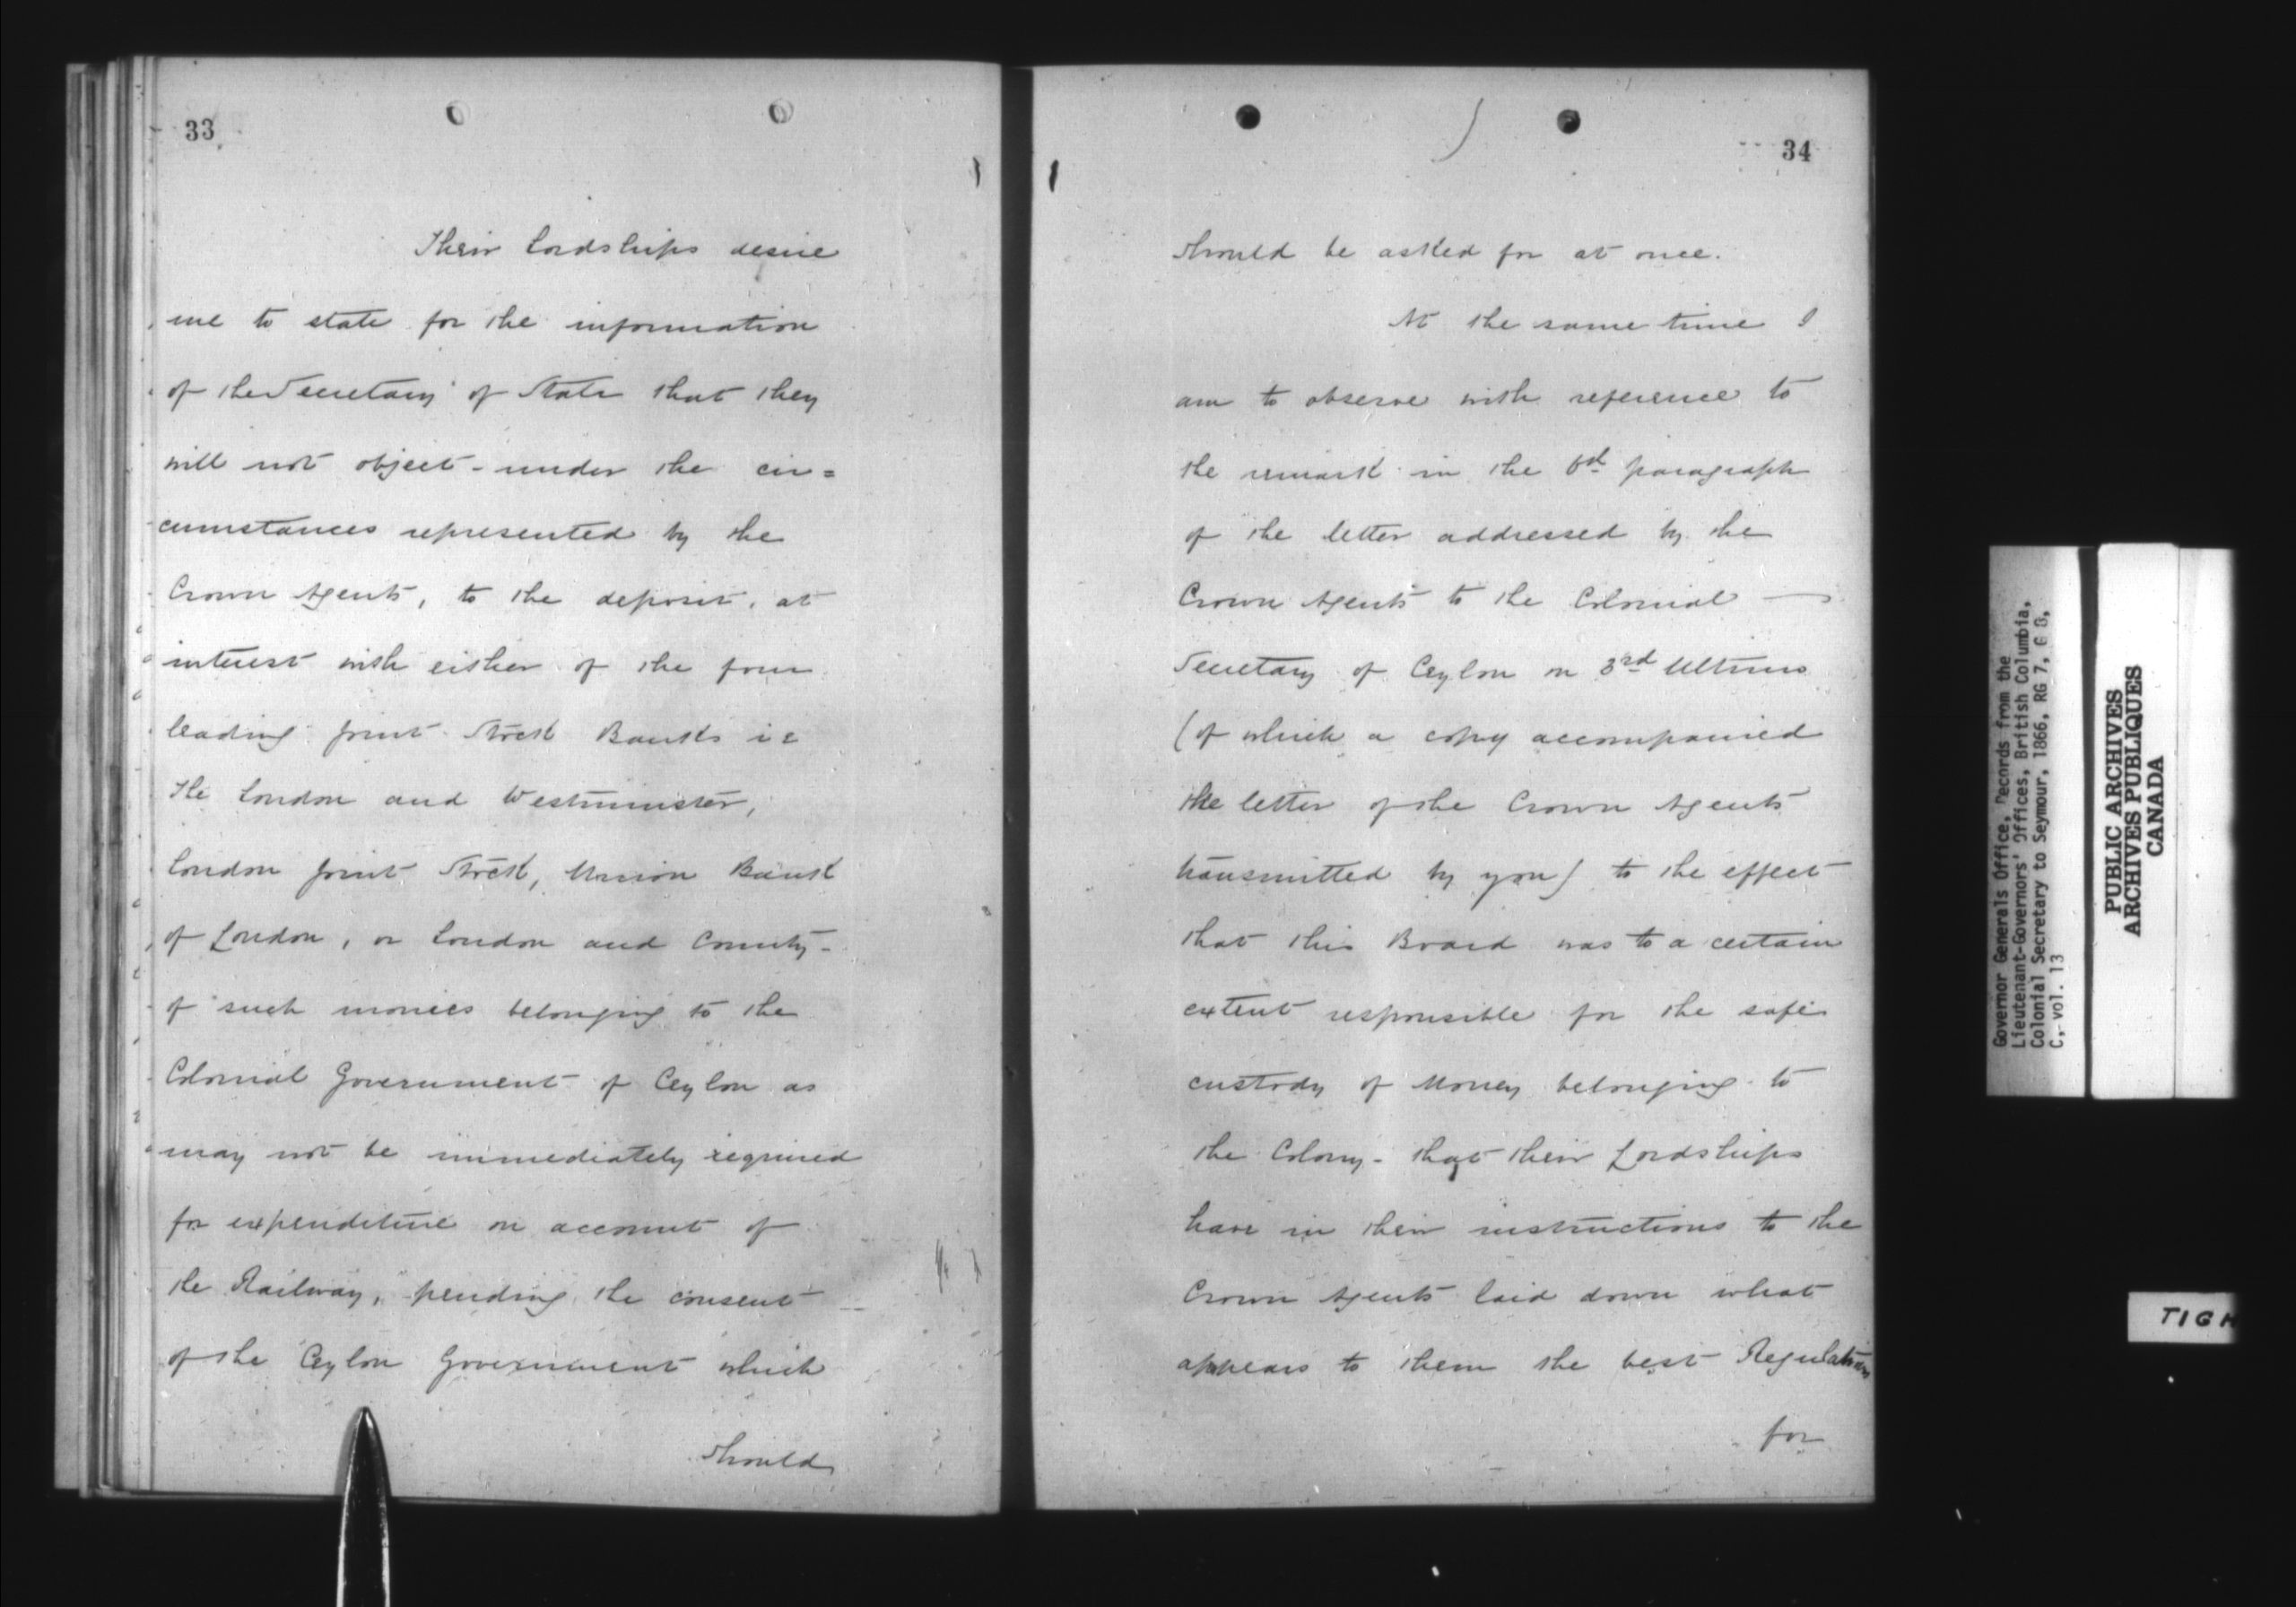 33
Their Lordships desire
me to state for the information
of the Secretary of State that they
will not object - under the cir=
cumstances represented by the
Crown Agents, to the deposit, at
interest with either of the four
leading Joint Stock Banks i e
The London and Westminster,
London Joint Stock, Union Bank
of London, or London and County -
of such monies belonging to the
Colonial Government of Ceylon as
may not be immediately required
for expenditure on account of
the Railway, pending the consent
of the Ceylon Government which
should
34
should be asked for at once.
At the same time I
am to observe with reference to
the remark in the 6d paragraph
of the letter addressed by the
Crown Agents to the Colonial
Secretary of Ceylon on 3rd Ultimo
(of which a copy accompanied
the letter of the Crown Agents
transmitted by you) to the effect
that this Board was to a certain
extent responsible for the safe
custody of Money belonging to
the Colony - that their Lordships
have in their instructions to the
Crown Agents laid down what
appears to them the best Regulations
for
Governor Generals Office, Records from the
Lieutenant-Governors' Offices, British Columbia,
Colonial Secretary to Seymour, 1866, RG 7, G 8,
C, vol. 13
PUBLIC ARCHIVES
ARCHIVES PUBLIQUES
CANADA
TIGH